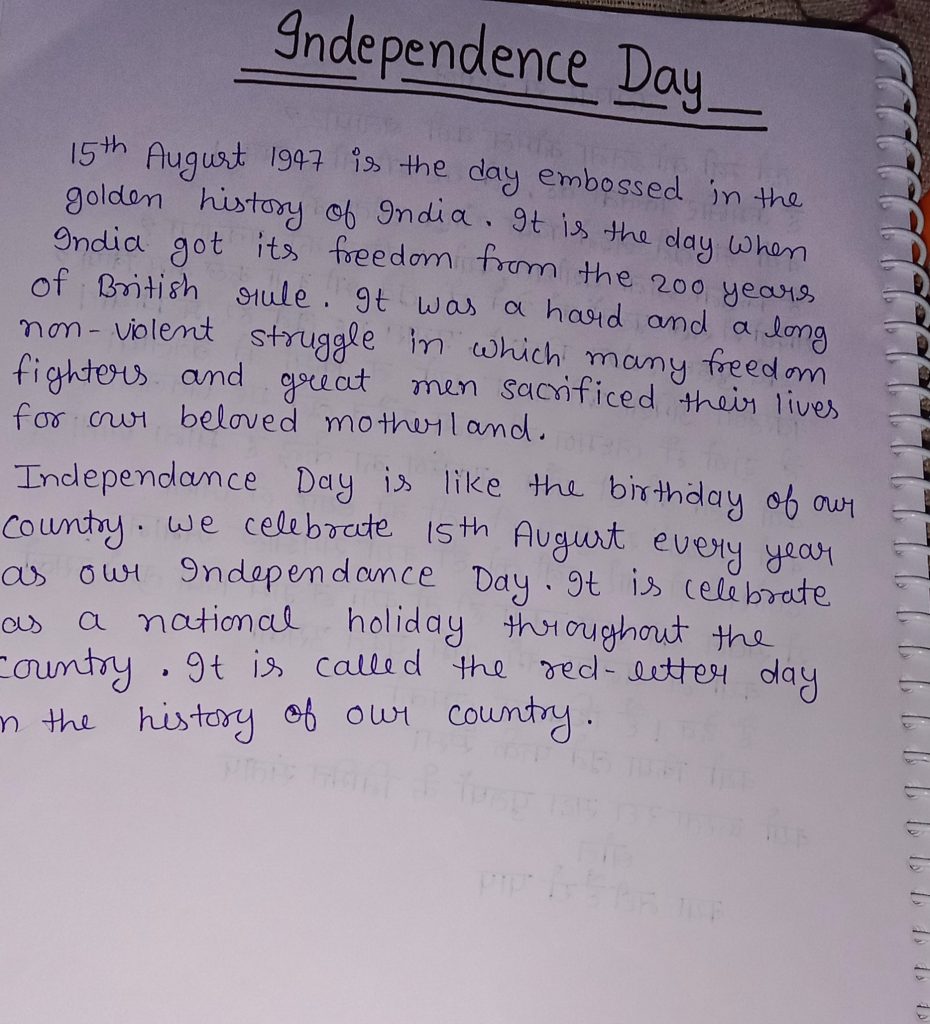 Independence Day
15th August 1947 is the day embossed in the
golden history of India. It is the day when
India got its freedom from the 200 years
of British rule. It was a hard and a long
non-violent struggle in which many freedom
fighters and great men sacrificed their lives
for our beloved motherland.
Independance Day is like the birthday of our
country. We celebrate 15th August every year
as our Independance Day. It is celebrate
as a national holiday throughout the
country. It is called the red-letter day
n the history of our country.